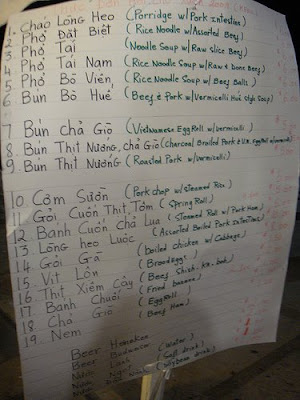 1. Chao Lòng Heo (Porridge w/ Pork Intestine)
2 Phở Đặt Biệt (Rice Noodle w/Assorted Beef)
3 Phở Tái (Noodle Soup w/ Raw slice Beef)
4 Phở Tái Nam (Rice Noodle w/ Raw & Done Beef)
5 Phở Bò Viên (Rice Noodle Soup w/ Beef Balls)
6 Bún Bò Huế (Beef & Pork w/Vermicelli Huế style Soup)
7 Bún chả Giò (Vietnamese Egg Roll w/ vermicelli)
8. Bún Thịt Nướng, chả Giò (Charcoal Broiled Pork & V.N. Egg Roll w/
9. Bún Thịt Nướng (Roasted Pork w/ vermicelli)
10. Cơm Sườn (Pork chop w/ Steamed Rice)
11. Gỏi Cuốn Thịt, Tôm (Spring Roll)
12 Bánh Cuốn Chả Lụa (Steamed Roll w/ Pork Ham)
13. Lòng heo Luộc (Assorted Boiled Pork Intestines)
14. Gỏi Gà (Boiled chicken w/ Cabbage)
15. Vịt Lộn
16. Thịt Xiêm Cây (Beef Shish-Ka-bob)
17 Bánh Chuối (Fried banana)
18 Chả Giò (Egg Roll)
19. Nem (Beef Ham)
Beer Heneken
Beer Budweiser
(Water)
(Soft drink)
drink)